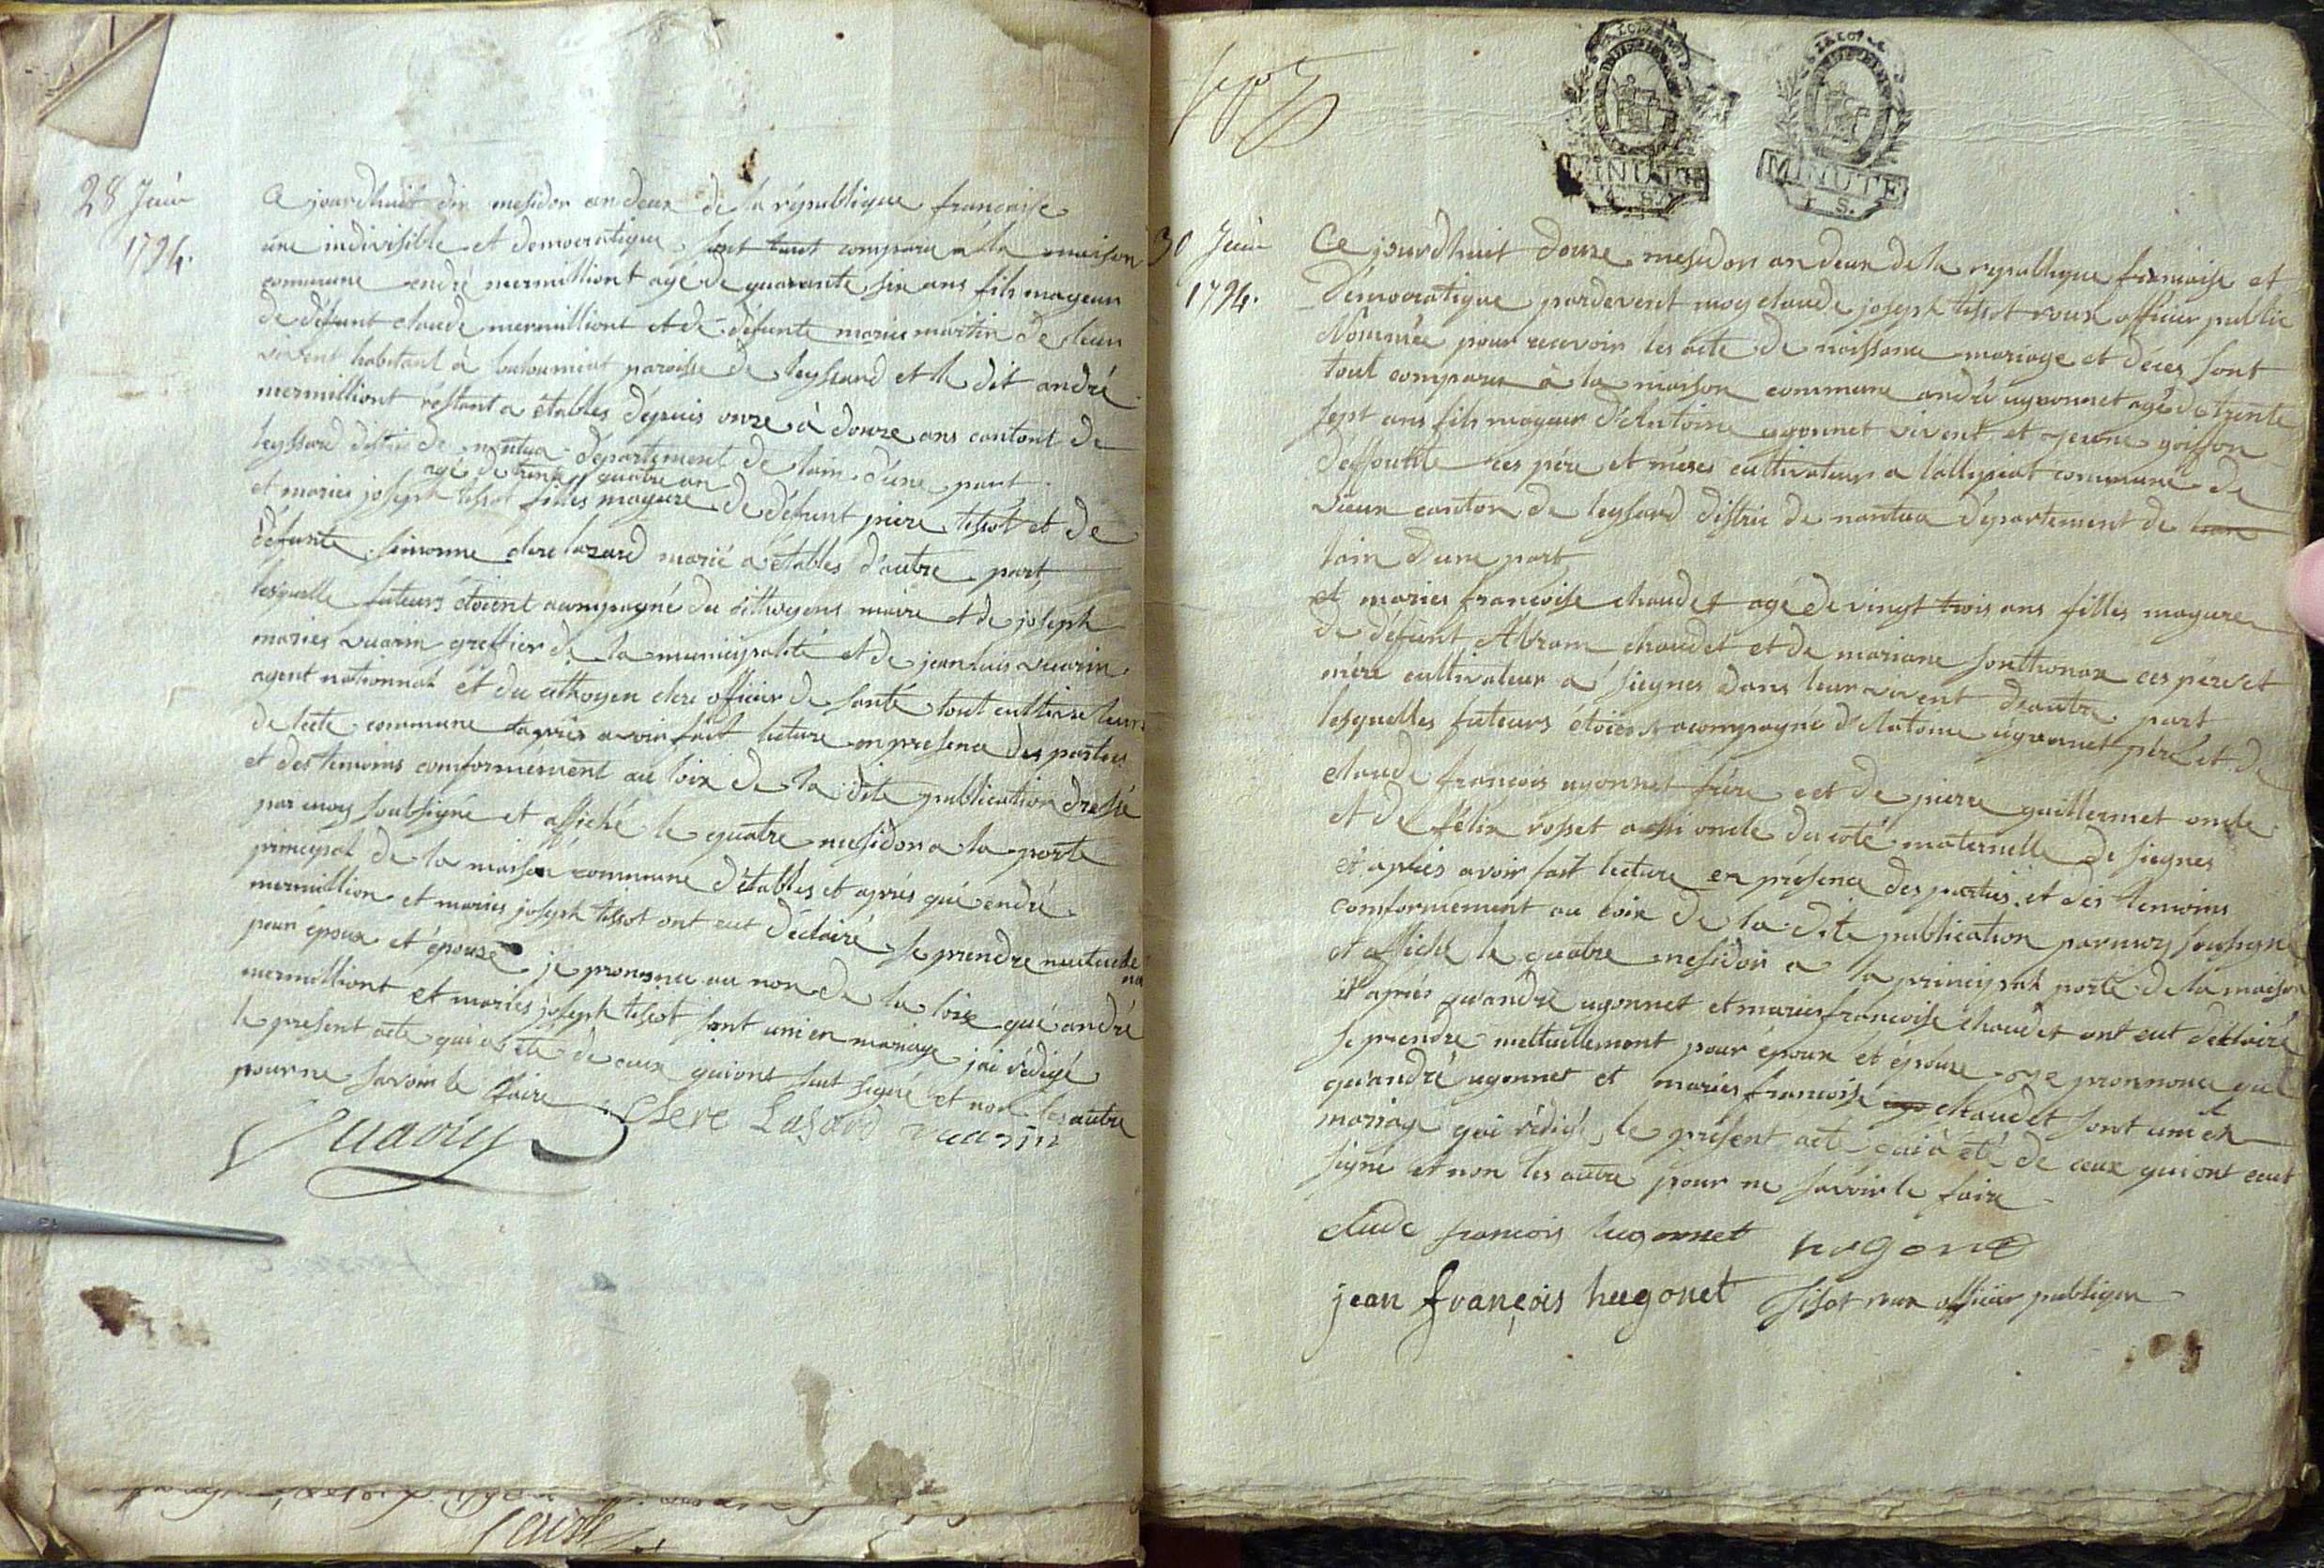 28 Juin
1794.
Ce jourdhuit dix mesidor an deux de la république francaise
une indivisible et democratique sont tout comparu a la maison
commune andré mermilliont agé de quarante six ans fils mageur
de défunt claude mermilliont et de défunte marie martin de leur
vivent habitant à baloumiat paroisse de leyssard et le dit andré
mermilliont réstant a étables depuis onze à douze ans cantont de
leyssard distric de nantua département de lain d'une part
agé de trente quatre an
et maries joseph tissot filles mageure de défunt pierre tissot et de
défunte simonne clere lazard marié a étables d'autre part,
lesquelle futeurs étoient acompagné du sithoyens maire et de joseph
maries vuarin greffier de la municipalité et de jean luis vuarin
agent nationnal et du cithoyen clere officier de santé tout cultivateurs
de lecte commune daprés avoir fait lecture en presence des parties
et des temoins comformément au loix de la dite publication dressé
par moy soubsigné et affiché le quatre mesidor a la porte
principal de la maison commune d'étables et aprés qué andré
mermillion et maries joseph tissot ont eut déclairé se prendre mutuelle
pour époux et épouse je prononce au non de la loix qué andré
mermilliont et maries joseph tissot sont uni en mariage jai rédigé
le présent acte qui a été de ceux qui ont sut signé et non les autre
pour ne savoir le faire
Clere Lasard vuarin
Vuarin
30 Juin
1794.
MINUTE
4 S.
MINUTE
1 S.
Ce jourdhuit douze mesidor an deux de la republique francaise et
démocratique pardevent moy claude joseph tissot roux officier public
Nommée pour recevoir les acte de naissance mariage et déces sont
tout comparu à la maison commune andré ugonnet agé de trente
sept ans fils mageur d'Antoine ugonnet vivent et jeanne goisson
deffunte ces pére et méres cultivateur a lallegiat commune de
vieux canton de leyssard distric de nantua département de
lain d'une part
et maries francoise chaudet agé de vingt trois ans filles mageure
de défunt Abram chaudet et de mariane sonthonax ces pére et
mére cultivateur a siegnes dans leur vivent d'autre part
lesquelles futeurs étoient acompagné d'Antoine ugonnet pére et de
claude francois ugonnet frére et de pierre guillermet oncle
et de félix rosset aussi oncle du coté maternelle de siegnes
et aprés avoir fait lecture en présence des parties et des temoins
comformement au loix de la dite publication par moy soussigné
et affiché le quatre mesidor a la principal porte de la maison
et aprés qu'andré ugonnet et maries francoise chaudet ont eut déclairé
se prendre mettuellement pour époux et épouse je pronnonce que
qu'andré ugonnet et maries francoise chaudet sont uni en
mariage j'ai rédigé le présent acte qui a été de ceux qui ont seut
signé et non les autre pour ne savoir le faire
claude francois hugonnet hugone
jean françois hugonet tissot roux officier publique